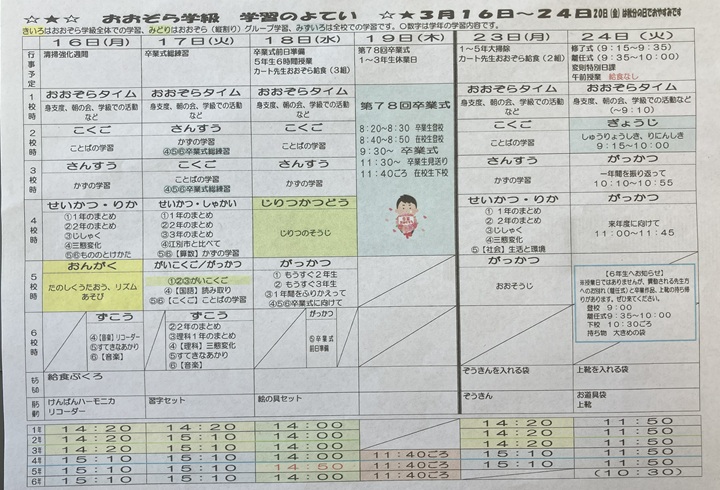 ☆★☆ おおぞら学級 学習のよてい ☆★3月16日～24日 20日(金)春秋分の日でおやすみです
きいろはおおぞら学級全体での学習、みどりはおおぞら(縦割り)グループ学習、みずいろは全校での学習です。〇数字は学年の学習内容です。
16日(月) 17日(火) 18日(水) 19日(木) 23日(月) 24日(火)
行事予定
清掃強化週間
卒業式総練習
卒業式前日準備
5年生6時間授業
カート先生おおぞら給食(3組)
第78回卒業式
1～3年生休業日
1～5年大掃除
カート先生おおぞら給食(2組)
修了式(9:15～9:35)
離任式(9:35～10:00)
変則特別日課
午前授業 給食なし
1校時
おおぞらタイム
身支度、朝の会、学級での活動など
おおぞらタイム
身支度、朝の会、学級での活動など
おおぞらタイム
身支度、朝の会、学級での活動など
第78回卒業式
8:20～8:30 卒業生登校
8:40～8:50 在校生登校
9:30～ 卒業式
11:30～ 卒業生見送り
11:40ごろ 在校生下校
おおぞらタイム
身支度、朝の会、学級での活動など
おおぞらタイム
身支度、朝の会、学級での活動など
(～9:10)
2校時
こくご
ことばの学習
さんすう
かずの学習
④⑤⑥卒業式総練習
こくご
ことばの学習
こくご
ことばの学習
ぎょうじ
しゅうりょうしき、りにんしき
9:15～10:00
3校時
さんすう
かずの学習
こくご
ことばの学習
④⑤⑥卒業式総練習
さんすう
かずの学習
さんすう
かずの学習
がっかつ
一年間を振り返って
10:10～10:55
4校時
せいかつ・りか
①1年のまとめ
②2年のまとめ
③じしゃく
④三態変化
⑤⑥もののとけかた
せいかつ・しゃかい
①1年のまとめ
②2年のまとめ
③3年のまとめ
④江別市と比べて
⑤⑥【算数】かずの学習
じりつかつどう
じりつのそうじ
せいかつ・りか
①1年のまとめ
②2年のまとめ
③じしゃく
④三態変化
⑤【社会】生活と環境
がっかつ
来年度に向けて
11:00～11:45
5校時
おんがく
たのしくうたおう、リズムあそび
がいこくご/がっかつ
①②③がいこくご
④【国語】読み取り
⑤⑥【こくご】ことばの学習
がっかつ
① もうすぐ2年生
② もうすぐ3年生
③1年間をふりかえって
④⑤⑥卒業式に向けて
がっかつ
おおそうじ
【6年生へお知らせ】
※授業日ではありませんが、異動される先生方へのお別れ(離任式)と卒業作品、上靴の持ち帰りがあります。ぜひ来てください。
登校 9:00
離任式9:35～10:00
下校 10:30ごろ
持ち物 大きめの袋
6校時
ずこう
④【音楽】リコーダー
⑤すてきなあかり
⑥【音楽】
ずこう
②2年のまとめ
③理科1年のまとめ
④【理科】三態変化
⑤すてきなあかり
⑥【音楽】
がっかつ
⑤卒業式前日準備
給食ぶくろ
ぞうきんを入れる袋
上靴を入れる袋
けんばんハーモニカ
リコーダー
習字セット
絵の具セット
ぞうきん
お道具袋
上靴
1年 14:20 14:20 14:00 14:20 11:50
2年 14:20 15:10 14:00 14:20 11:50
3年 14:20 15:10 14:00 14:20 11:50
4年 15:10 15:10 14:00 11:40ごろ 15:10 11:50
5年 15:10 15:10 14:50 11:40ごろ 15:10 11:50
6年 15:10 15:10 14:00 11:40ごろ (10:30)